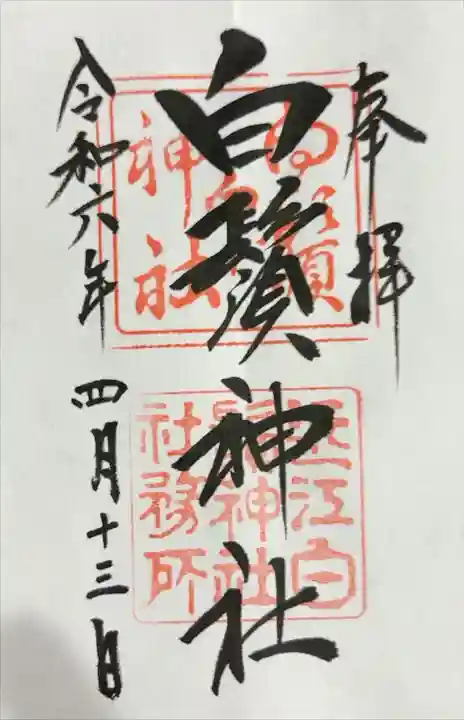 奉拝
白鬚神社
令和六年
四月十三日
白鬚
神社
近江白
鬚神社
社務所